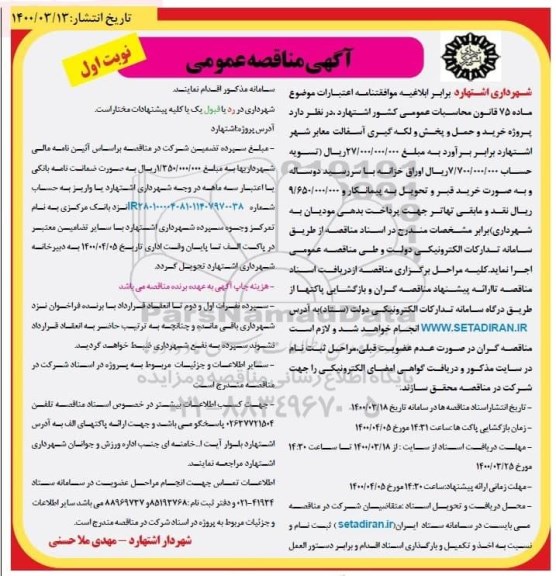 تاریخ انتشار: ۱۴۰۰/۰۳/۱۳
آگهی مناقصه عمومی
نوبت اول
شهرداری اشتهارد برابر ابلاغیه موافقتنامه اعتبارات موضوع
ماده ۷۵ قانون محاسبات عمومی کشور اشتهارد ،در نظر دارد
پروژه خرید و حمل و پخش و لکه گیری آسفالت معابر شهر
اشتهارد برابر بر آورد به مبلغ ۲۷/۰۰۰/۰۰۰/۰۰۰ریال (تسویه
حساب ۷/۷۰۰/۰۰۰/۰۰۰ریال اوراق خزانه با سررسید دوساله
و به صورت خرید قیر و تحویل به پیمانکار و ۹/۶۵۰/۰۰۰/۰۰۰
ریال نقد و مابقی تهاتر جهت پرداخت بدهی مودیان به
شهرداری)برابر مشخصات مندرج در اسناد مناقصه از طریق
سامانه تدارکات الکترونیکی دولت و طی مناقصه عمومی
اجرا نماید.کلیه مراحل برگزاری مناقصه ازدریافت اسناد
مناقصه تاارائه پیشنهاد مناقصه گران و بازگشایی پاکتها از
طریق درگاه سامانه تدارکات الکترونیکی دولت (ستاد)به آدرس
WWW.SETADIRAN.IR انجام خواهد شد و لازم است
مناقصه گران در صورت عدم عضویت قبلی،مراحل ثبت نام
در سایت مذکور و دریافت گواهی امضای الکترونیکی را جهت
شرکت در مناقصه محقق سازند.
- تاریخ انتشار اسناد مناقصه ها در سامانه تاریخ ۱۴۰۰/۰۳/۱۸
- زمان بازگشایی پاکت ها:ساعت ۱۴:۳۱ مورخ ۱۴۰۰/۰۴/۰۵
- مهلت دریافت اسناد از سایت : از ۱۴۰۰/۰۳/۱۸ تا ساعت ۱۴:۳۰
مورخ ۱۴۰۰/۰۳/۲۵
-مهلت زمانی ارائه پیشنهاد:ساعت ۱۴:۳۰مورخ ۱۴۰۰/۰۴/۰۵
- محل دریافت و تحویل اسناد :متقاضیان شرکت در مناقصه
می بایست در سامانه ستاد ایران(setadiran.ir ) ثبت نام و
نسبت به اخذ و تکمیل و بارگذاری اسناد اقدام و برابر دستور العمل
سامانه مذکور اقدام نمایند.
شهرداری در رد یا قبول یک یا کلیه پیشنهادات مختار است.
آدرس پروژه:اشتهارد
- مبلغ سپرده تضمین شرکت در مناقصه براساس آئین نامه مالی
شهرداریها به مبلغ ۱/۳۵۰/۰۰۰/۰۰۰ریال به صورت ضمانت نامه بانکی
با اعتبار سه ماهه در وجه شهرداری اشتهارد یا واریز به حساب
شماره نزد بانک مرکزی به نام
تمرکز وجوه سپرده شهرداری اشتهارد یا سایر تضامین معتبر
در پاکت الف تا پایان وقت اداری تاریخ ۱۴۰۰/۰۴/۰۵ به دبیرخانه
شهرداری اشتهارد تحویل گردد.
- هزینه چاپ آگهی به عهده برنده مناقصه می باشد
- سپرده نفرات اول و دوم تا انعقاد قرارداد با برنده فراخوان نزد
شهرداری باقی مانده و چنانچه به ترتیب حاضر به انعقاد قرارداد
نشوند سپرده به نفع شهرداری ضبط خواهد گردید.
- سایر اطلاعات و جزئیات مربوط به پروژه در اسناد شرکت در
مناقصه مندرج است
- جهت کسب اطلاعات بیشتر در خصوص اسناد مناقصه تلفن
۰۲۶۳۷۷۲۱۵۰۴ پاسخگو می باشد و جهت ارائه پاکتهای الف به آدرس
اشتهارد بلوار آیت ا..خامنه ای جنب اداره ورزش و جوانان شهرداری
اشتهارد مراجعه نمایند.
اطلاعات تماس جهت انجام مراحل عضویت در سامانه ستاد
۰۲۱-۴۱۹۳۴ و دفتر ثبت نام :۸۵۱۹۳۷۶۸و ۸۸۹۶۹۷۳۷ می باشد سایر اطلاعات
و جزئیات مربوط به پروژه در اسناد شرکت در مناقصه مندرج است.
شهردار اشتهارد – مهدی ملا حسنی
ParsNamadData
پایگاه اطلاع رسانی مناقصه و مزایده
۰۲۱-۸۸۳۴۹۶۷۰-۵